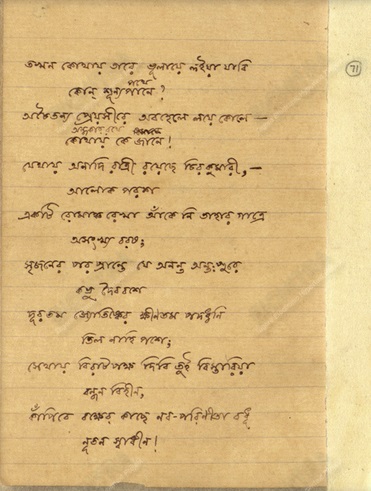 তখন কোথায় তারে ভুলায়ে লইয়া যাবি
পথে
কোন্ শূন্যপানে?
অচৈতন্য প্রেয়সীরে অবহেলে লয়ে কোলে—
অন্ধকার রথে
কোথায় কে জানে!
যেথায় অনাদি রাত্রি রয়েছে চিরকুমারী,—
আলোক পরশ
একটি রোমাঞ্চ রেখা আঁকে নি তাহার গাত্রে
অসংখ্য বরষ;
সৃজনের পরপ্রান্তে যে অনন্ত অন্তঃপুরে
কভু দৈববশে
দূরতম জ্যোতিষ্কের ক্ষীণতম পদধ্বনি
তিল নাহি পশে,
সেথায় বিরাট পক্ষ দিবি তুই বিস্তারিয়া
বন্ধন বিহীন,
কাঁপিবে বক্ষের কাছে নব-পরিণীতা বধূ
নূতন স্বাধীন!
71